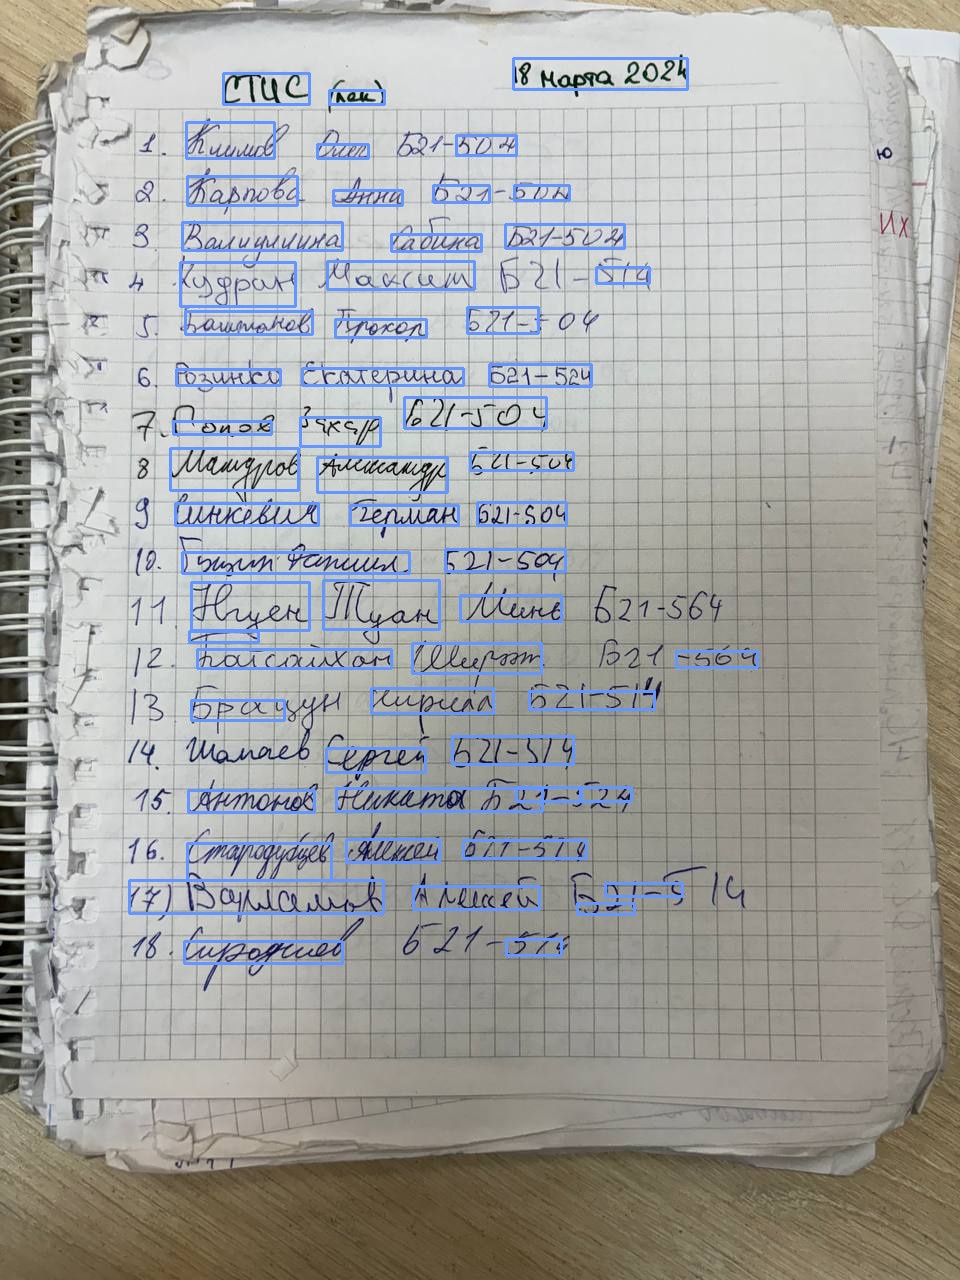 СТИС (лек) 18 марта 2024
1. Климов Олег Б21-504
2. Карпова Анна Б21-504
3. Валиуллина Сабина Б21-504
4 Кудран Максим Б21-514
5. Баштанов Прохор Б21-504
6. Розинко Екатерина Б21-524
7. Попов Захар Б21-504
8 Мажуров Александр Б21-504
9 Синкевич Герман Б21-504
10. Даниил Б21-504
11. Нгуен Туан Минь Б21-564
12. Батсайхан Б21-564
13. Брацун Кирилл Б21-514
14. Шамаев Сергей Б21-514
15. Антонов Никита Б21-524
16. Стародубцев Алексей Б21-514
17) Варламов Алексей Б21-514
18. Б21-514
ю
Их